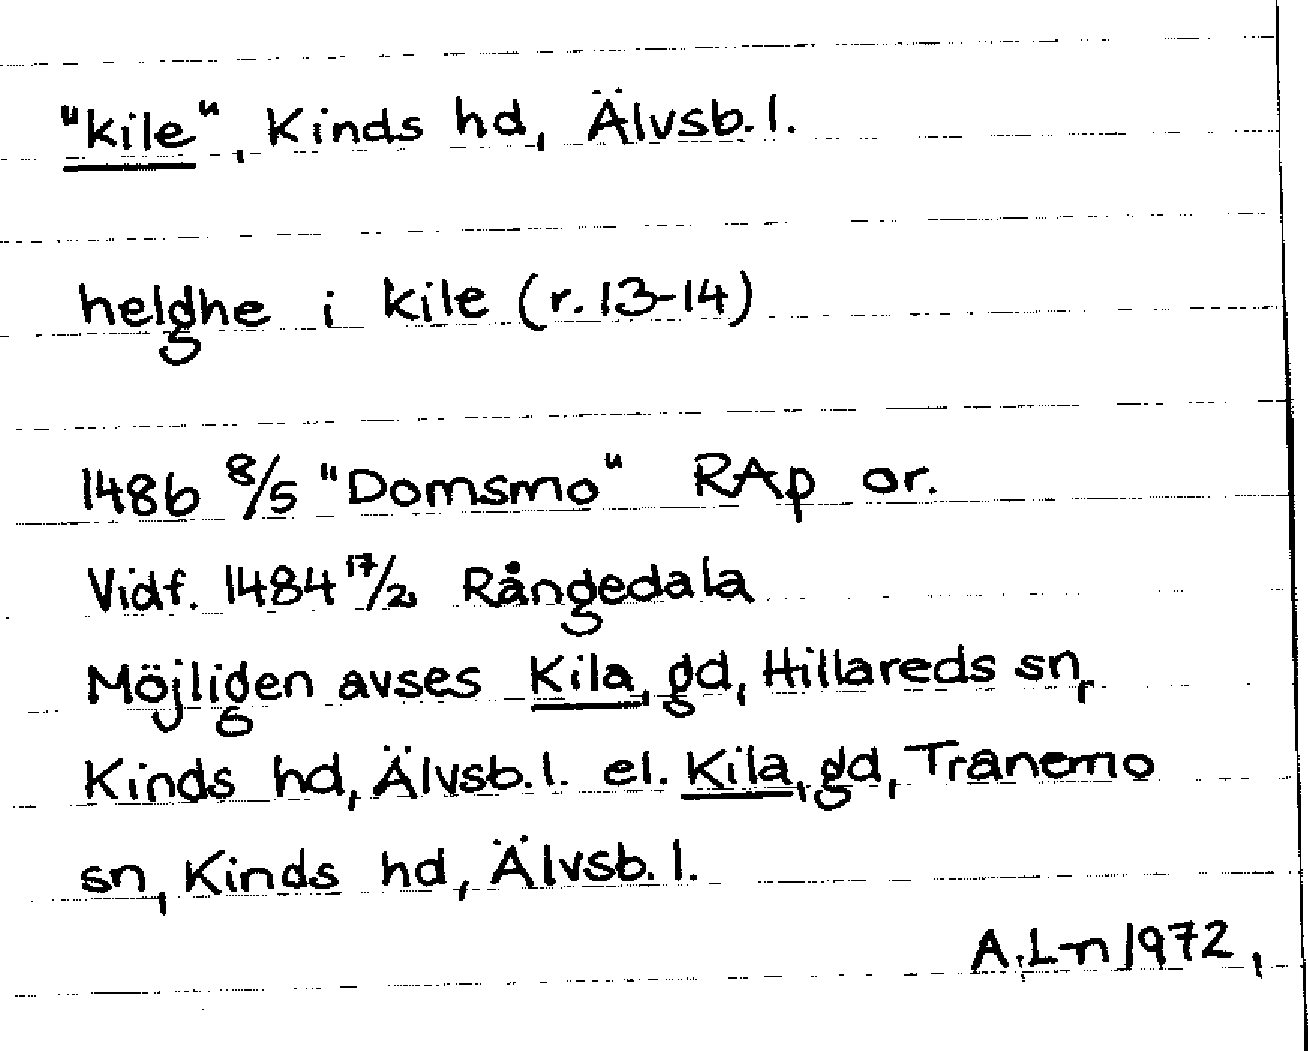 "kile", Kinds hd, Älvsb. l.
helghe i kile (r. 13-14)
1486 8/5 "Domsmo" RAp or.
Vidf. 1484 17/2 Rångedala
Möjligen avses Kila, gd, Hillareds sn,
Kinds hd, Älvsb. l. el. Kila, gd, Tranemo
sn, Kinds hd, Älvsb. l.
A. L-n 1972,